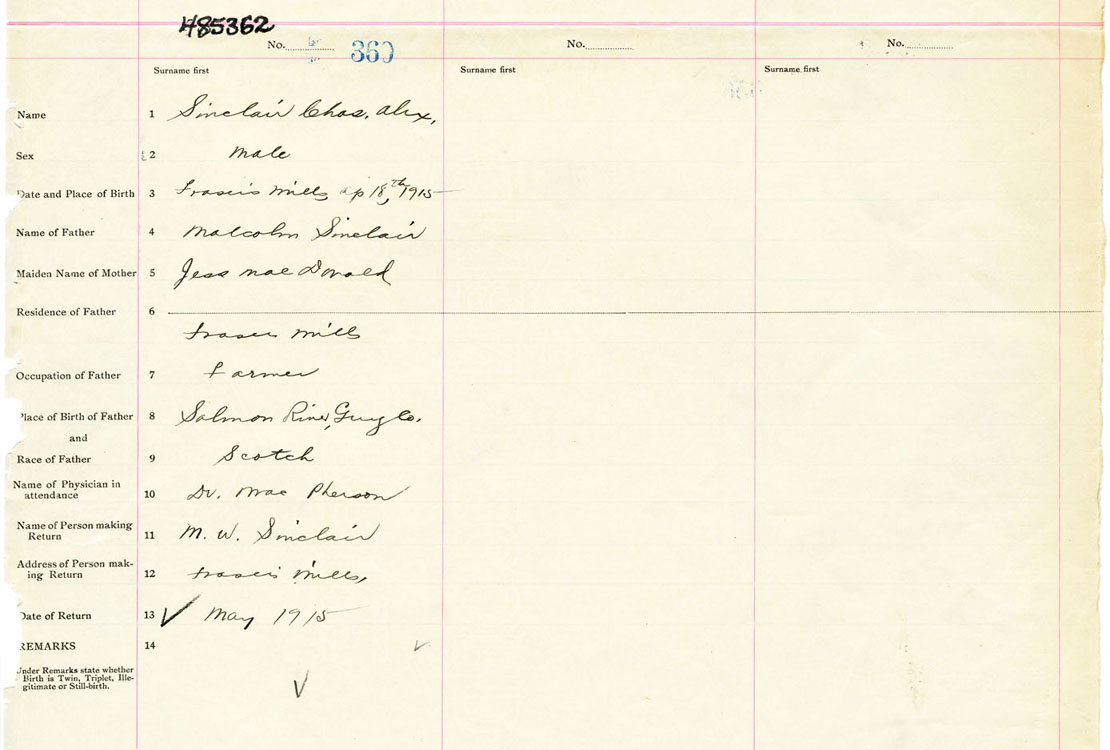 485362
No. 360 No. No.
Surname first Surname first Surname first
Name 1 Sinclair Chas. Alex.
Sex 2 Male
Date and Place of Birth 3 Frasers Mills Ap 18th, 1915
Name of Father 4 Malcolm Sinclair
Maiden Name of Mother 5 Jess Mac Donald
Residence of Father 6
Frasers Mills
Occupation of Father 7 Farmer
Place of Birth of Father 8 Salmon River, Guy Co.
and
Race of Father 9 Scotch
Name of Physician in
attendance 10 Dr. Mac Pherson
Name of Person making
Return 11 M. W. Sinclair
Address of Person mak-
ing Return 12 Frasers Mills,
Date of Return 13 May 1915
REMARKS 14
Under Remarks state whether
Birth is Twin, Triplet, Ille-
gitimate or Still-birth.